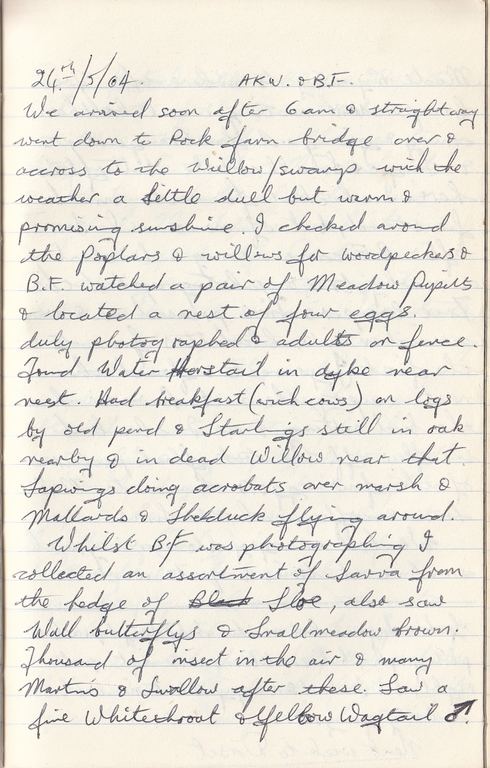 24th/5/64. A.K.W. & B.F.
We arrived soon after 6am & straightway
went down to Rock farm bridge over &
accross to the Willow/swamp with the
weather a little dull but warm &
promising sunshine. I checked around
the Poplars & willows for woodpeckers &
B.F. watched a pair of Meadow Pipits
& located a nest of four eggs.
duly photographed & adults on fence.
Found Water Horstail in dyke near
nest. Had breakfast (with cows) on logs
by old pond & Starlings still in oak
nearby & in dead Willow near that.
Lapwings doing acrobats over marsh &
Mallards & Shelduck flying around.
Whilst BF was photographing I
collected an assortment of larva from
the hedge of Black Sloe, also saw
Wall butterflys & Small meadow brown.
Thousand of insect in the air & many
Martins & Swallow after these. Saw a
fine Whitethroat & Yellow Wagtail ♂.